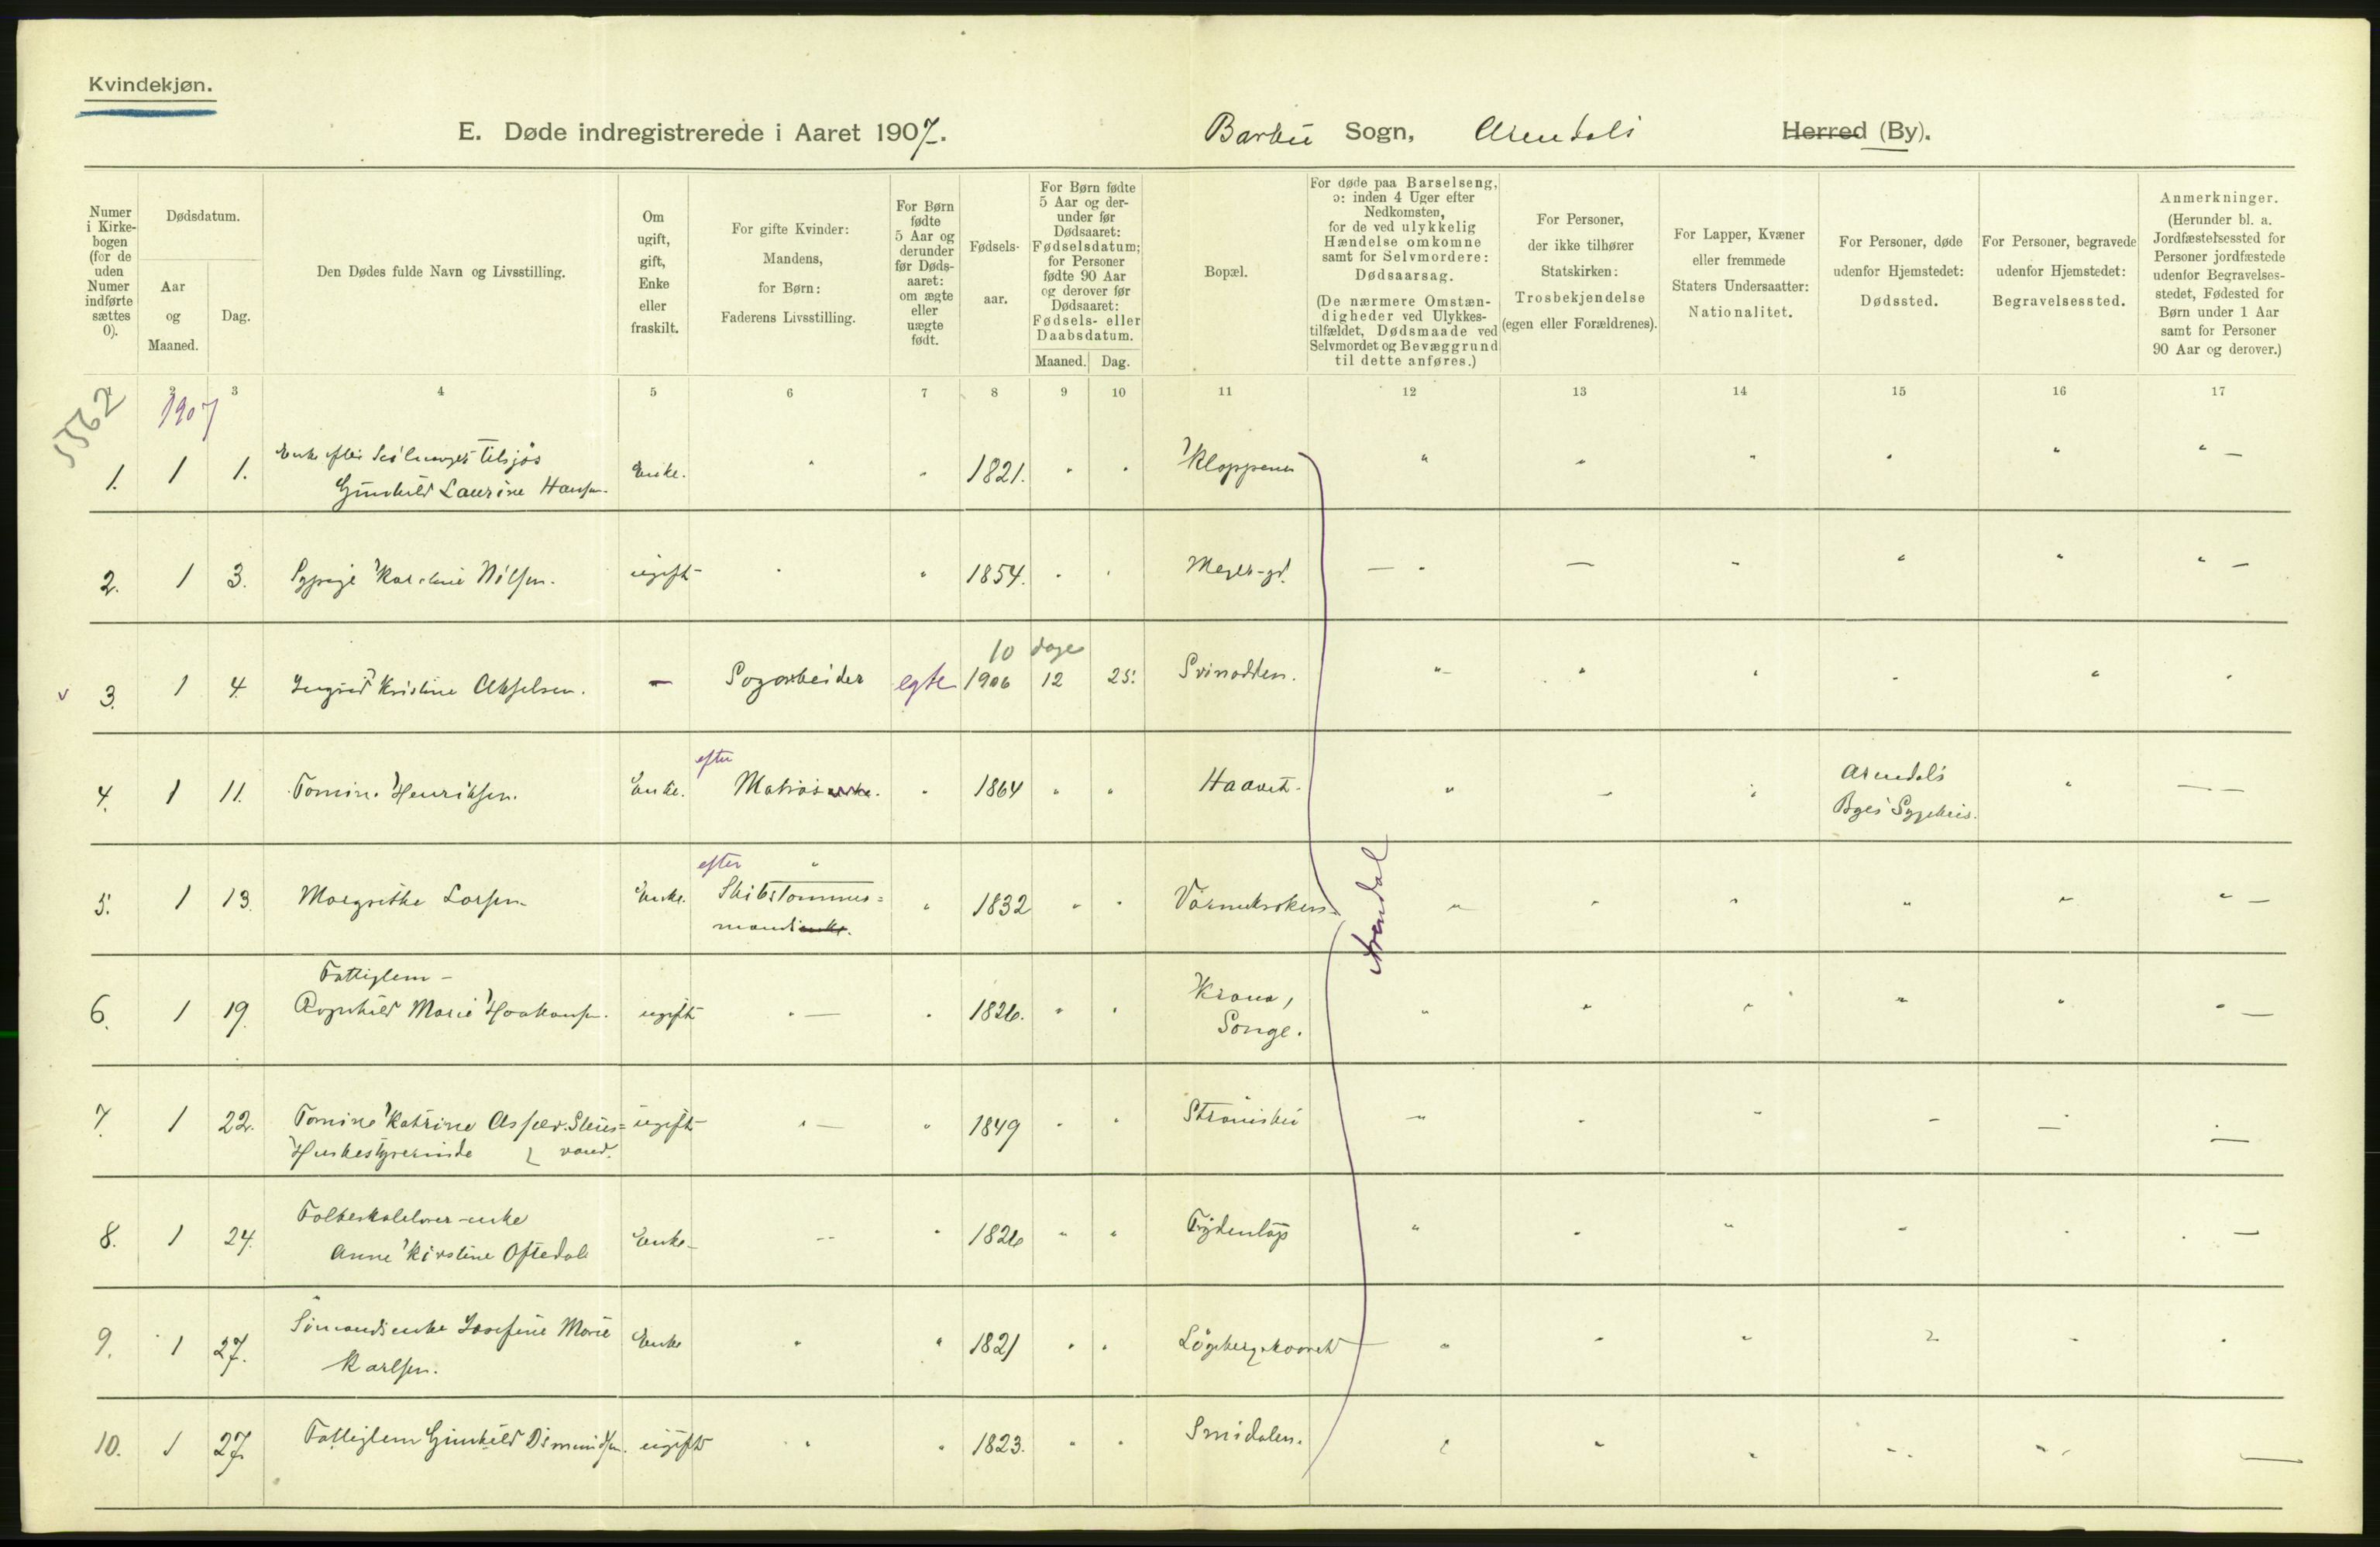 Kvindekjøn.
E. Døde indregistrerede i Aaret 1907.
Barbu Sogn, Arendals Herred (By).
Numer i Kirke-bogen (for de uden Numer indførte sættes 0).
Dødsdatum.
Aar og Maaned.
Dag.
Den Dødes fulde Navn og Livsstilling.
Om ugift, gift, Enke eller fraskilt.
For gifte Kvinder: Mandens, for Børn: Faderens Livsstilling.
For Børn fødte 5 Aar og derunder før Døds-aaret: om ægte eller uægte født.
Fødsels-aar.
For Børn fødte 5 Aar og der-under før Dødsaaret: Fødselsdatum; for Personer fødte 90 Aar og derover før Dødsaaret: Fødsels- eller Daabsdatum.
Maaned. Dag.
Bopæl.
For døde paa Barselseng, ɔ: inden 4 Uger efter Nedkomsten, for de ved ulykkelig Hændelse omkomne samt for Selvmordere: Dødsaarsag.
(De nærmere Omstæn-digheder ved Ulykkes-tilfældet, Dødsmaade ved Selvmordet og Bevæggrund til dette anføres.)
For Personer, der ikke tilhører Statskirken: Trosbekjendelse (egen eller Forældrenes).
For Lapper, Kvæner eller fremmede Staters Undersaatter: Nationalitet.
For Personer, døde udenfor Hjemstedet: Dødssted.
For Personer, begravede udenfor Hjemstedet: Begravelsessted.
Anmerkninger. (Herunder bl. a. Jordfæstelsessted for Personer jordfæstede udenfor Begravelses-stedet, Fødested for Børn under 1 Aar samt for Personer 90 Aar og derover.)
3 4 5 6 7 8 9 10 11 12 13 14 15 16 17
5562 1907
Enke efter tilsjøs
1. 1 1. Gunhild Laurine Hansen. Enke. " " 1821. " " Kloppene " " " " " " —
2. 1 3. Sypige Karoline Nilsen. ugift " " 1854. " " Meyer-gd. — " — " " " " —
10 dage
v 3. 1 4. Ingrid Kristine Akselsen. — Sagarbeider egte 1906 12 25. Svinodden. " " " " " "
efter
4. 1 11. Tomine Henriksen. Enke. Matrosenke. " 1864 " " Haavet. " " " Arendals
Byes Sygehus. " — —
efter "
5. 1 13. Margrethe Larsen Enke. Skibstømmer=
mandsenke. " 1832 " " " " " " " " —
Arendal
Fattiglem -
6. 1 19. Ragnhild Marie Haakonsen. ugift " — " 1826. " " Krana,
Songe. " " " " " " —
7. 1 22. Tomine Katrine Asser. ugift " — " 1849 " " Strømsbu " " " " " —
Husbestyrerinde
8. 1 24. Folkeskolelærer-enke
Anne Kirstine Oftedal Enke - -- " 1826 " " " " " " " " —
9. 1 27. Sømandsenke Josefine Marie
Karlsen. Enke " " 1821 " " " " " " " "
10. 1 27. Fattiglem Gunhild ugift " " 1823. " " Smidalen. " " " " " —